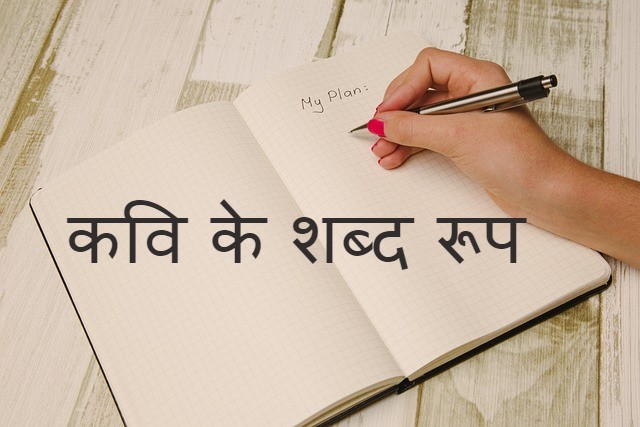 My Plan:
कवि के शब्द रूप